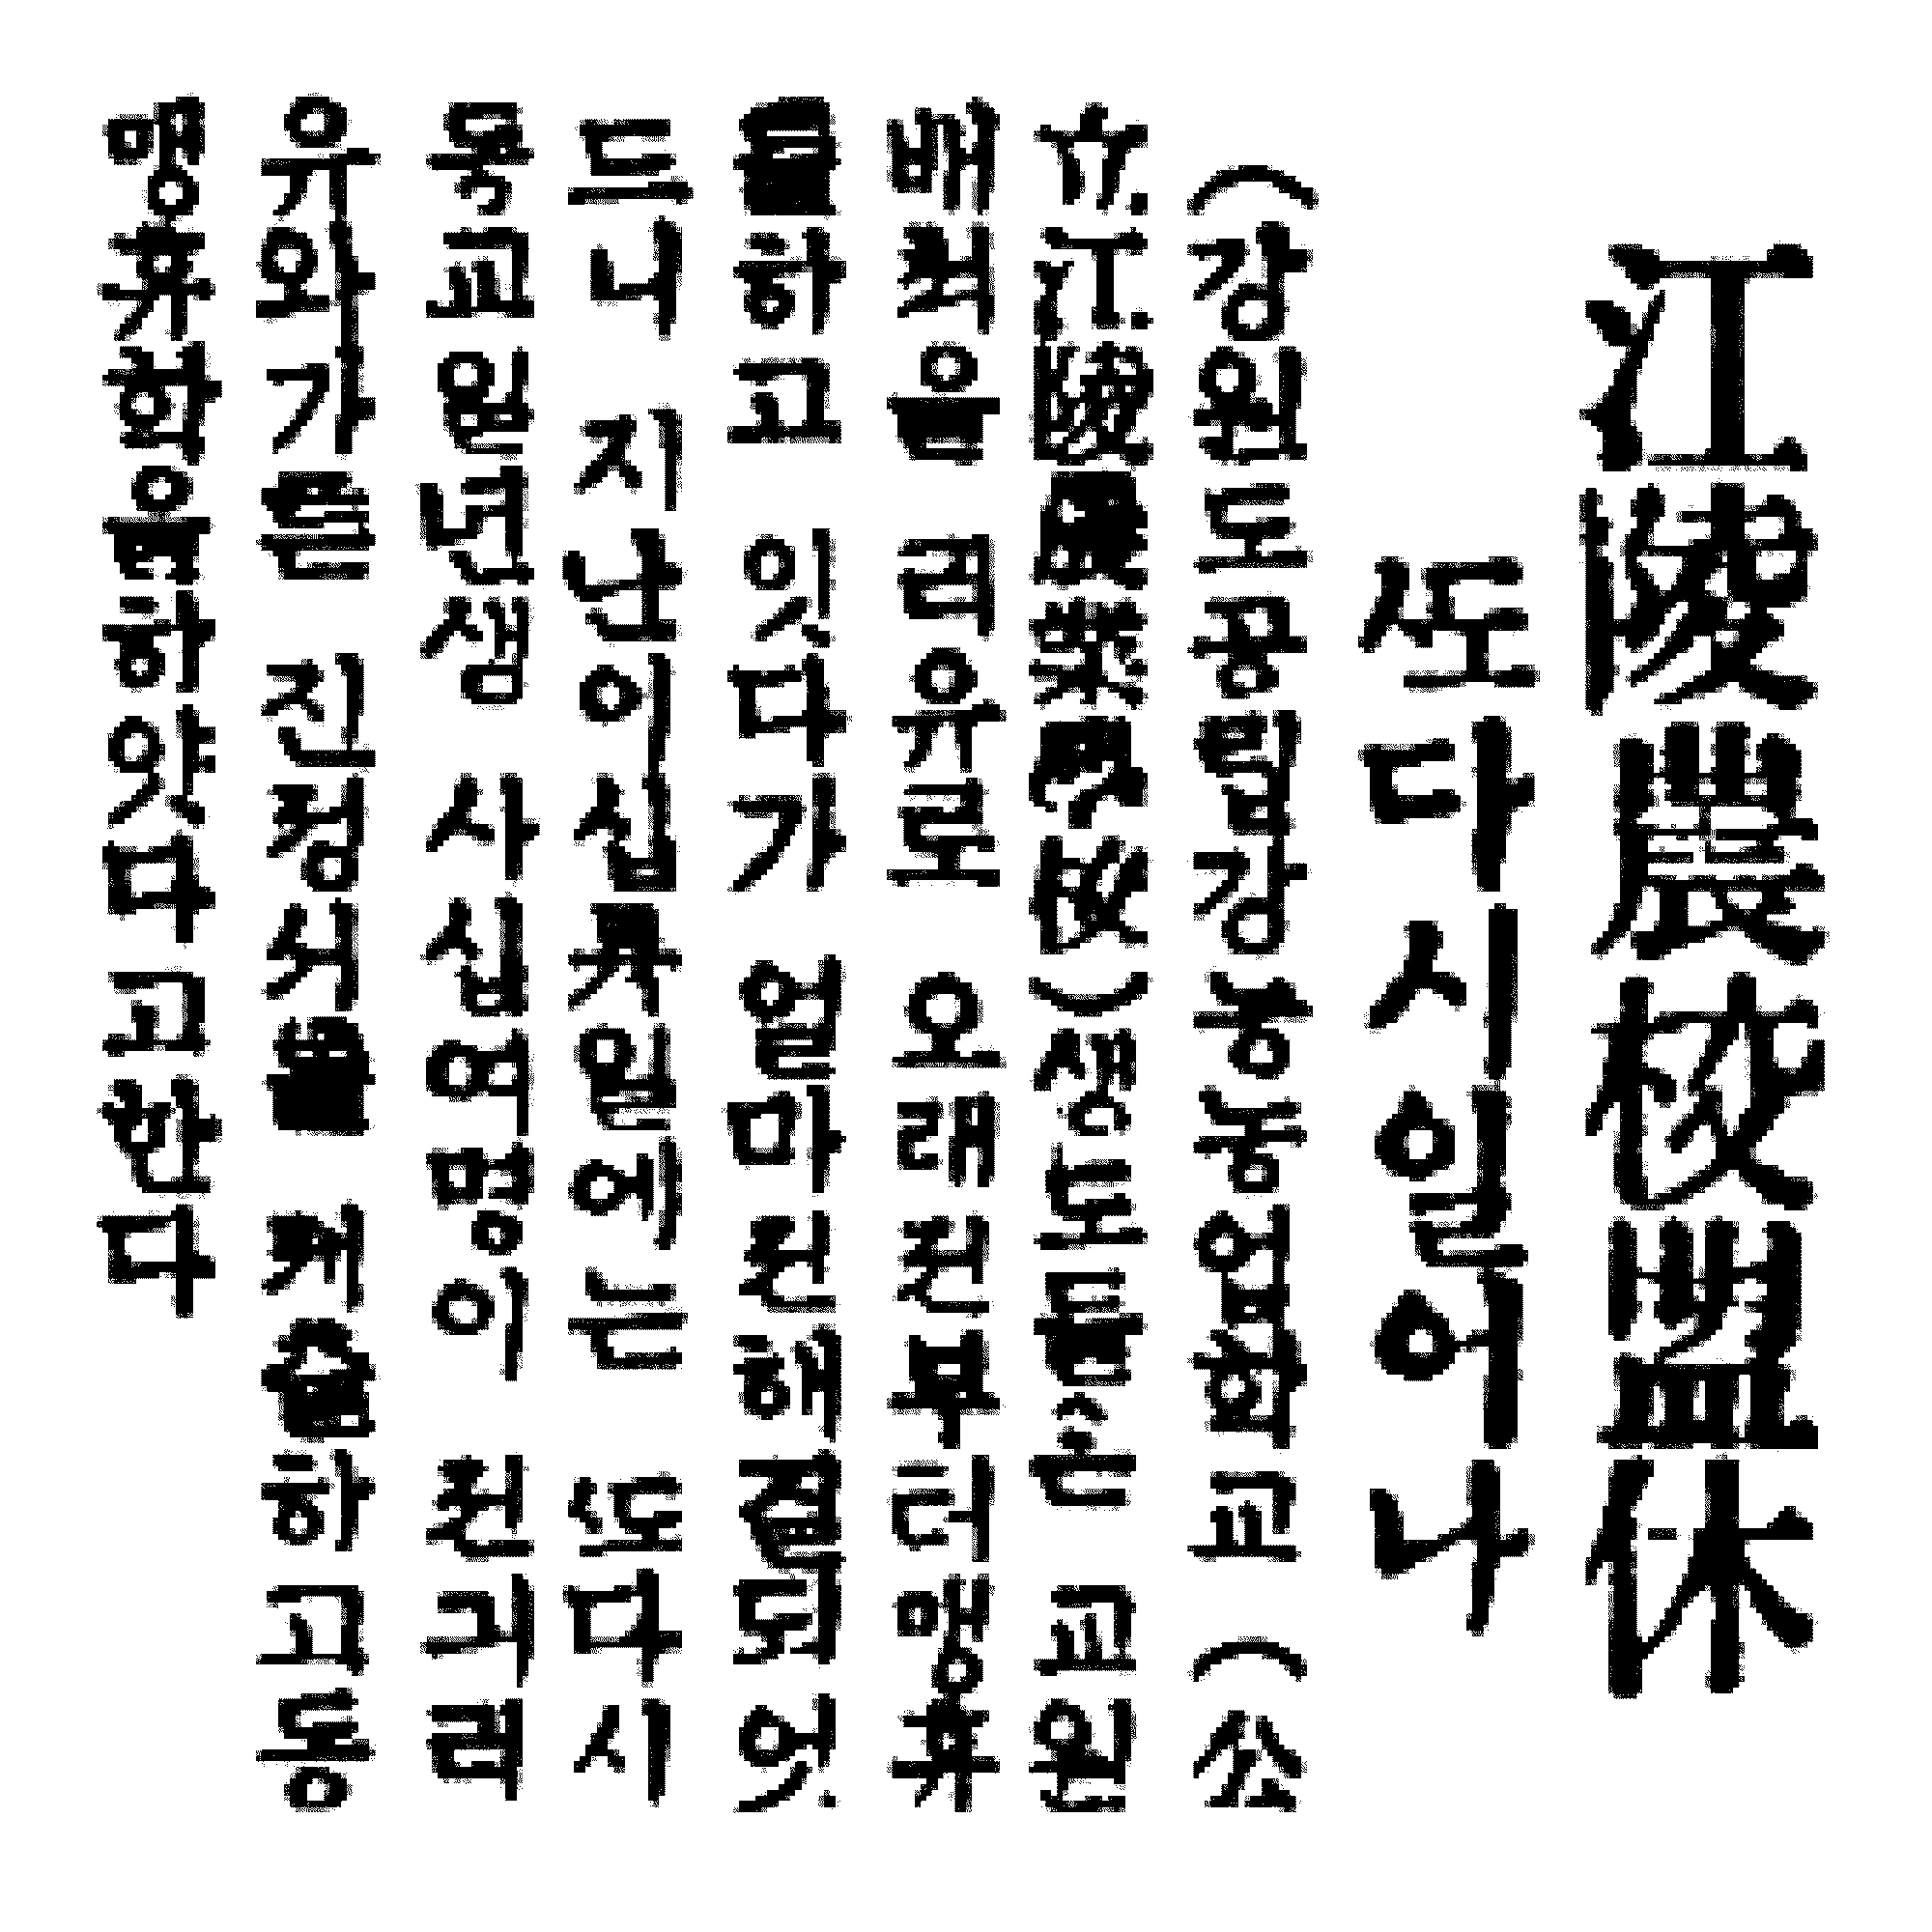 江陵農校盟休
ᄯᅩ다시일어나
(강원도공립강릉농업학교(公
立江陵農業學校)생도들은 교원
배척을 리유로 오래 전부터 맹휴
를하고 잇다가 얼마전해결되엇
드니 지난이십육일에는 ᄯᅩ다시
동교일년생 사십여명이 전긔력
유와가튼 진정서를 제출하고동
맹휴학을하얏다고한다